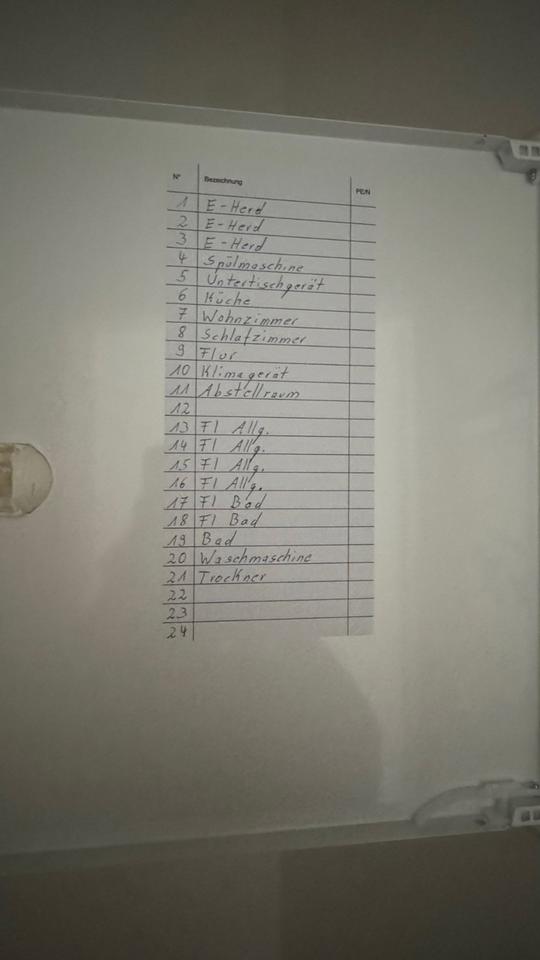 N° Bezeichnung PE/N
1 E-Herd
2 E-Herd
3 E-Herd
4 Spülmaschine
5 Untertischgerät
6 Küche
7 Wohnzimmer
8 Schlafzimmer
9 Flur
10 Klimagerät
11 Abstellraum
12
13 FI Allg.
14 FI Allg.
15 FI Allg.
16 FI Allg.
17 FI Bad
18 FI Bad
19 Bad
20 Waschmaschine
21 Trockner
22
23
24